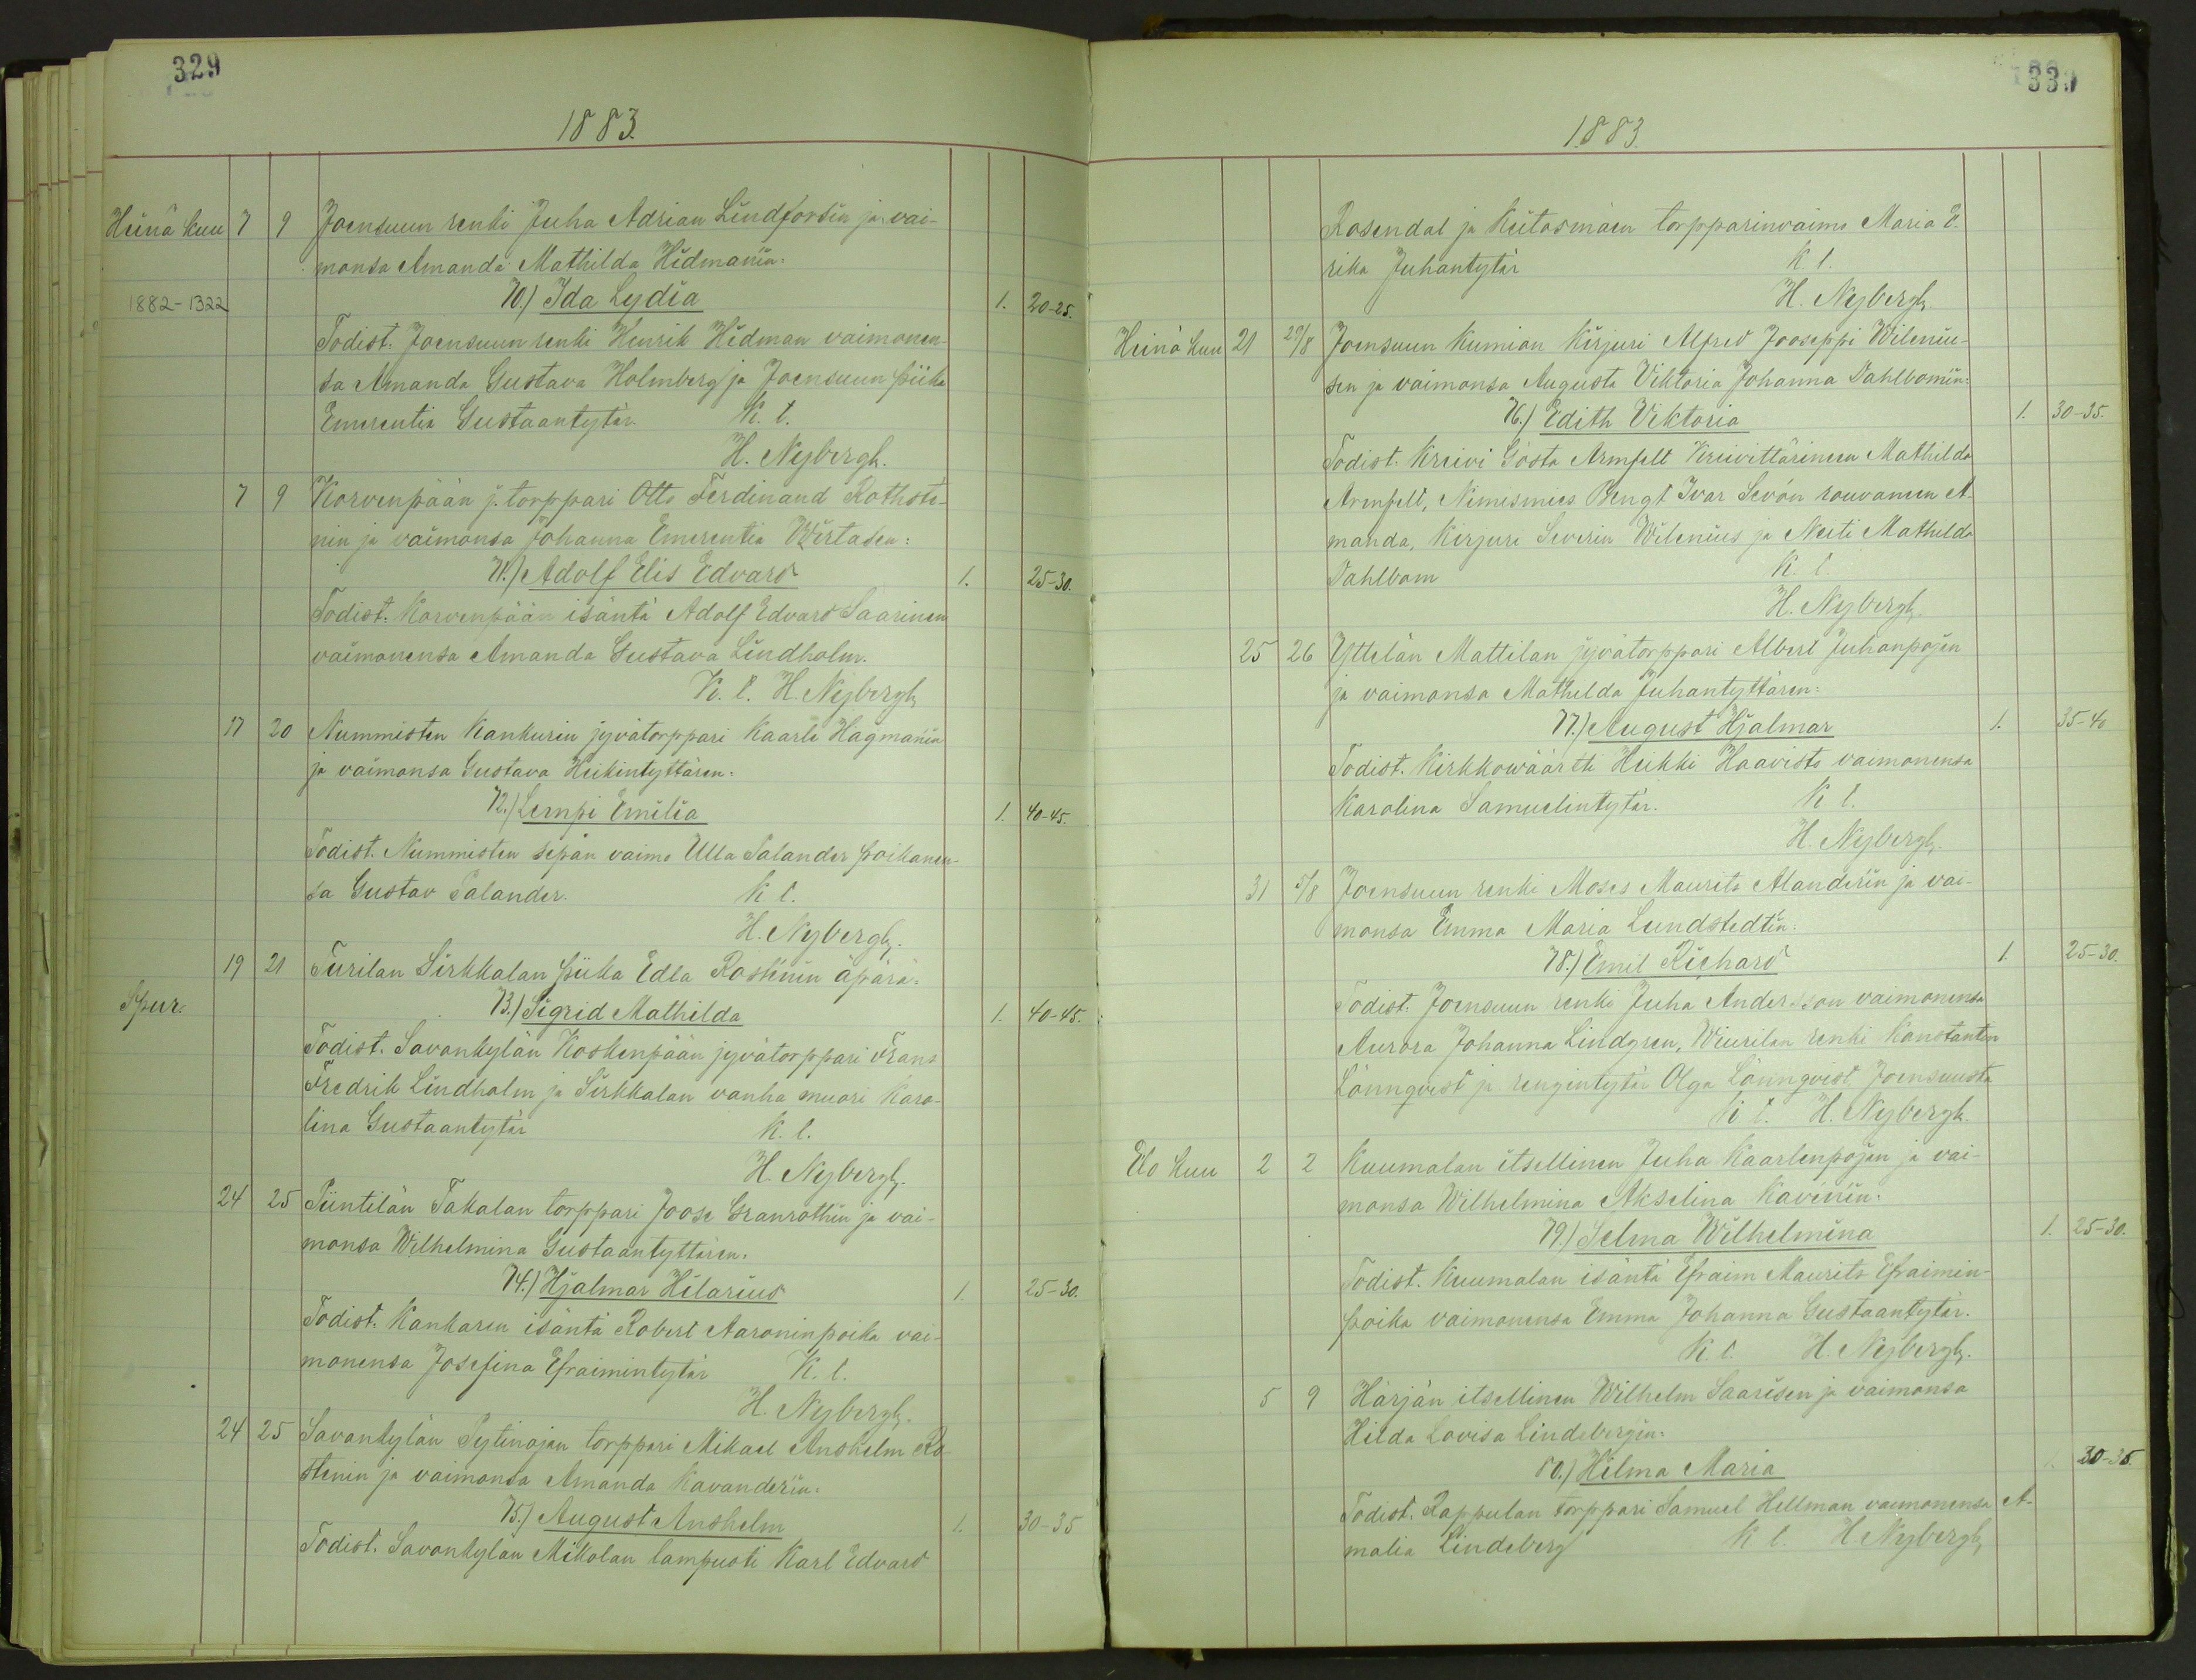 329
1883.
Heinä kuu 7 9 Joensuun renki Juha Adrian Lindforsin ja vai-
monsa Amanda Mathilda Hidmanin:
1882-1322 70.) Ida Lydia 1. 20-25.
Todist. Joensuun renki Henrik Hidman vaimonen-
sa Amanda Gustava Holmberg ja Joensuun piika
Emerentia Gustaantytär. K. l.
H. Nybergh.
7 9 Korvenpään j. torppari Otto Ferdinand Rothste-
nin ja vaimonsa Johanna Emerentia Wirtasen:
71.) Adolf Elis Edvard 1. 25-30.
Todist. Korvenpään isäntä Adolf Edvard Saarinen
vaimonensa Amanda Gustava Lindholm.
K. l. H. Nybergh
17 20 Nummisten Kankurin jyvätorppari Kaarle Hagmanin
ja vaimonsa Gustava Heikintyttären:
72.) Lempi Emilia 1. 40-45.
Todist. Nummisten sepän vaimo Ulla Salander poikanen-
sa Gustav Salander. K l.
H. Nybergh.
19 21 Turilan Sirkkalan piika Edla Roslinin äpärä:
Spur. 73.) Sigrid Mathilda 1. 40-45.
Todist. Savonkylän Koskenpään jyvätorppari Frans
Fredrik Lindholm ja Sirkkalan vanha muori Karo-
lina Gustaantytär K. l.
H. Nybergh.
24 25 Piintilän Takalan torppari Joose Granrothin ja vai-
monsa Wilhelmina Gustaantyttären:
74.) Hjalmar Hilarius 1. 25-30.
Todist. Kankaren isäntä Robert Aaroninpoika vai-
monensa Josefina Efraimintytär K. l.
H. Nybergh.
24 25 Savonkylän Pytinojan torppari Mikael Anshelm Ro-
stenin ja vaimonsa Amanda Kavanderin:
75.) August Anshelm 1. 30-35
Todist. Savonkylän Mikolan lampuoti Karl Edvard
330
1883.
Rosendal ja Kiitosmäen torpparinvaimo Maria E-
rika Juhantytär K. l.
H. Nybergh.
Heinä kuu 21 29/8 Joensuun Kumion Kirjuri Alfred Jooseppi Wileniu-
sen ja vaimonsa Augusta Viktoria Johanna Dahlbomin:
76.) Edith Viktoria 1. 30-35.
Todist. Kreivi Gösta Armfelt Kreivittärineen Mathilda
Armfelt, Nimesmies Bengt Ivar Sevón rouvaneen A-
manda, Kirjuri Severin Wilenius ja Neiti Mathilda
Dahlbom K. l.
H. Nybergh.
25 26 Yttelän Mattilan jyvätorppari Albert Juhanpojan
ja vaimonsa Mathilda Juhantyttären:
77.) August Hjalmar 1. 35-40
Todist. Kirkkowäärtti Heikki Haavisto vaimonensa
Karolina Samuelintytär. K l.
H. Nybergh.
31 5/8 Joensuun renki Moses Maurits Alanderin ja vai-
monsa Emma Maria Lundstedtin:
78.) Emil Richard 1. 25-30.
Todist. Joensuun renki Juha Andersson vaimonensa
Aurora Johanna Lindgren, Wiurilan renki Konstantin
Lönnqvist ja rengintytär Olga Lönnqvist Joensuusta
K l. H. Nybergh.
Elo kuu 2 2 Kuumalan itsellinen Juha Kaarlenpojan ja vai-
monsa Wilhelmina Akselina Kavenin:
79.) Selma Wilhelmina 1. 25-30.
Todist. Kuumalan isäntä Efraim Maurits Efraimin-
poika vaimonensa Emma Johanna Gustaantytär.
K. l. H. Nybergh.
5 9 Härjän itsellinen Wilhelm Saarisen ja vaimonsa
Hilda Lovisa Lindebergin:
80.) Hilma Maria 30-35.
Todist. Rappulan torppari Samuel Hellman vaimonensa A-
malia Lindeberg K l. H Nybergh